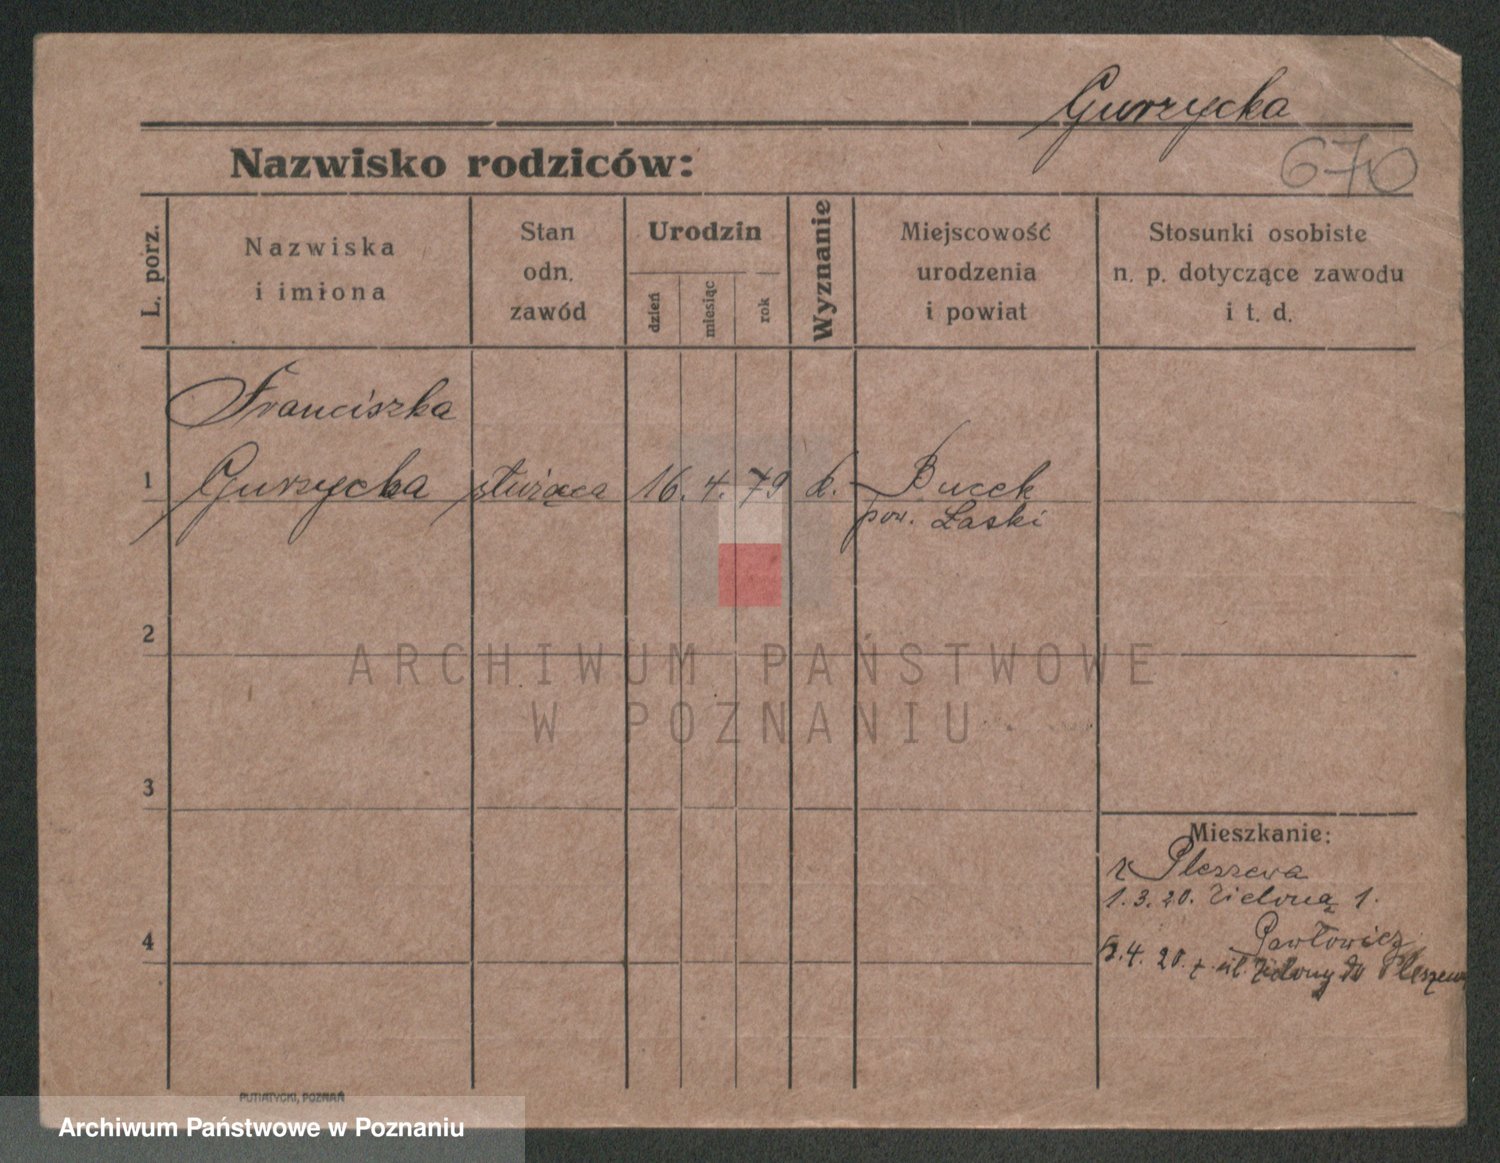 Gurzycka
670
Nazwisko rodziców:
L. porz.
Nazwiska
i imiona
Stan
odn.
zawód
Urodzin
dzień
miesiąc
rok
Wyznanie
Miejscowość
urodzenia
i powiat
Stosunki osobiste
n. p. dotyczące zawodu
i t. d.
Franciszka
1 Gurzycka służąca 16. 4. 79 k. Bucek
pow. Łaski
2
ARCHIWUM PAŃSTWOWE
W POZNANIU
3
Mieszkanie:
z Pleszewa
1. 3. 20. Zieloną 1.
4
Pawłowicz
4. 20. z ul. Zielony do Pleszewa
PUTIATYCKI, POZNAŃ
Archiwum Państwowe w Poznaniu